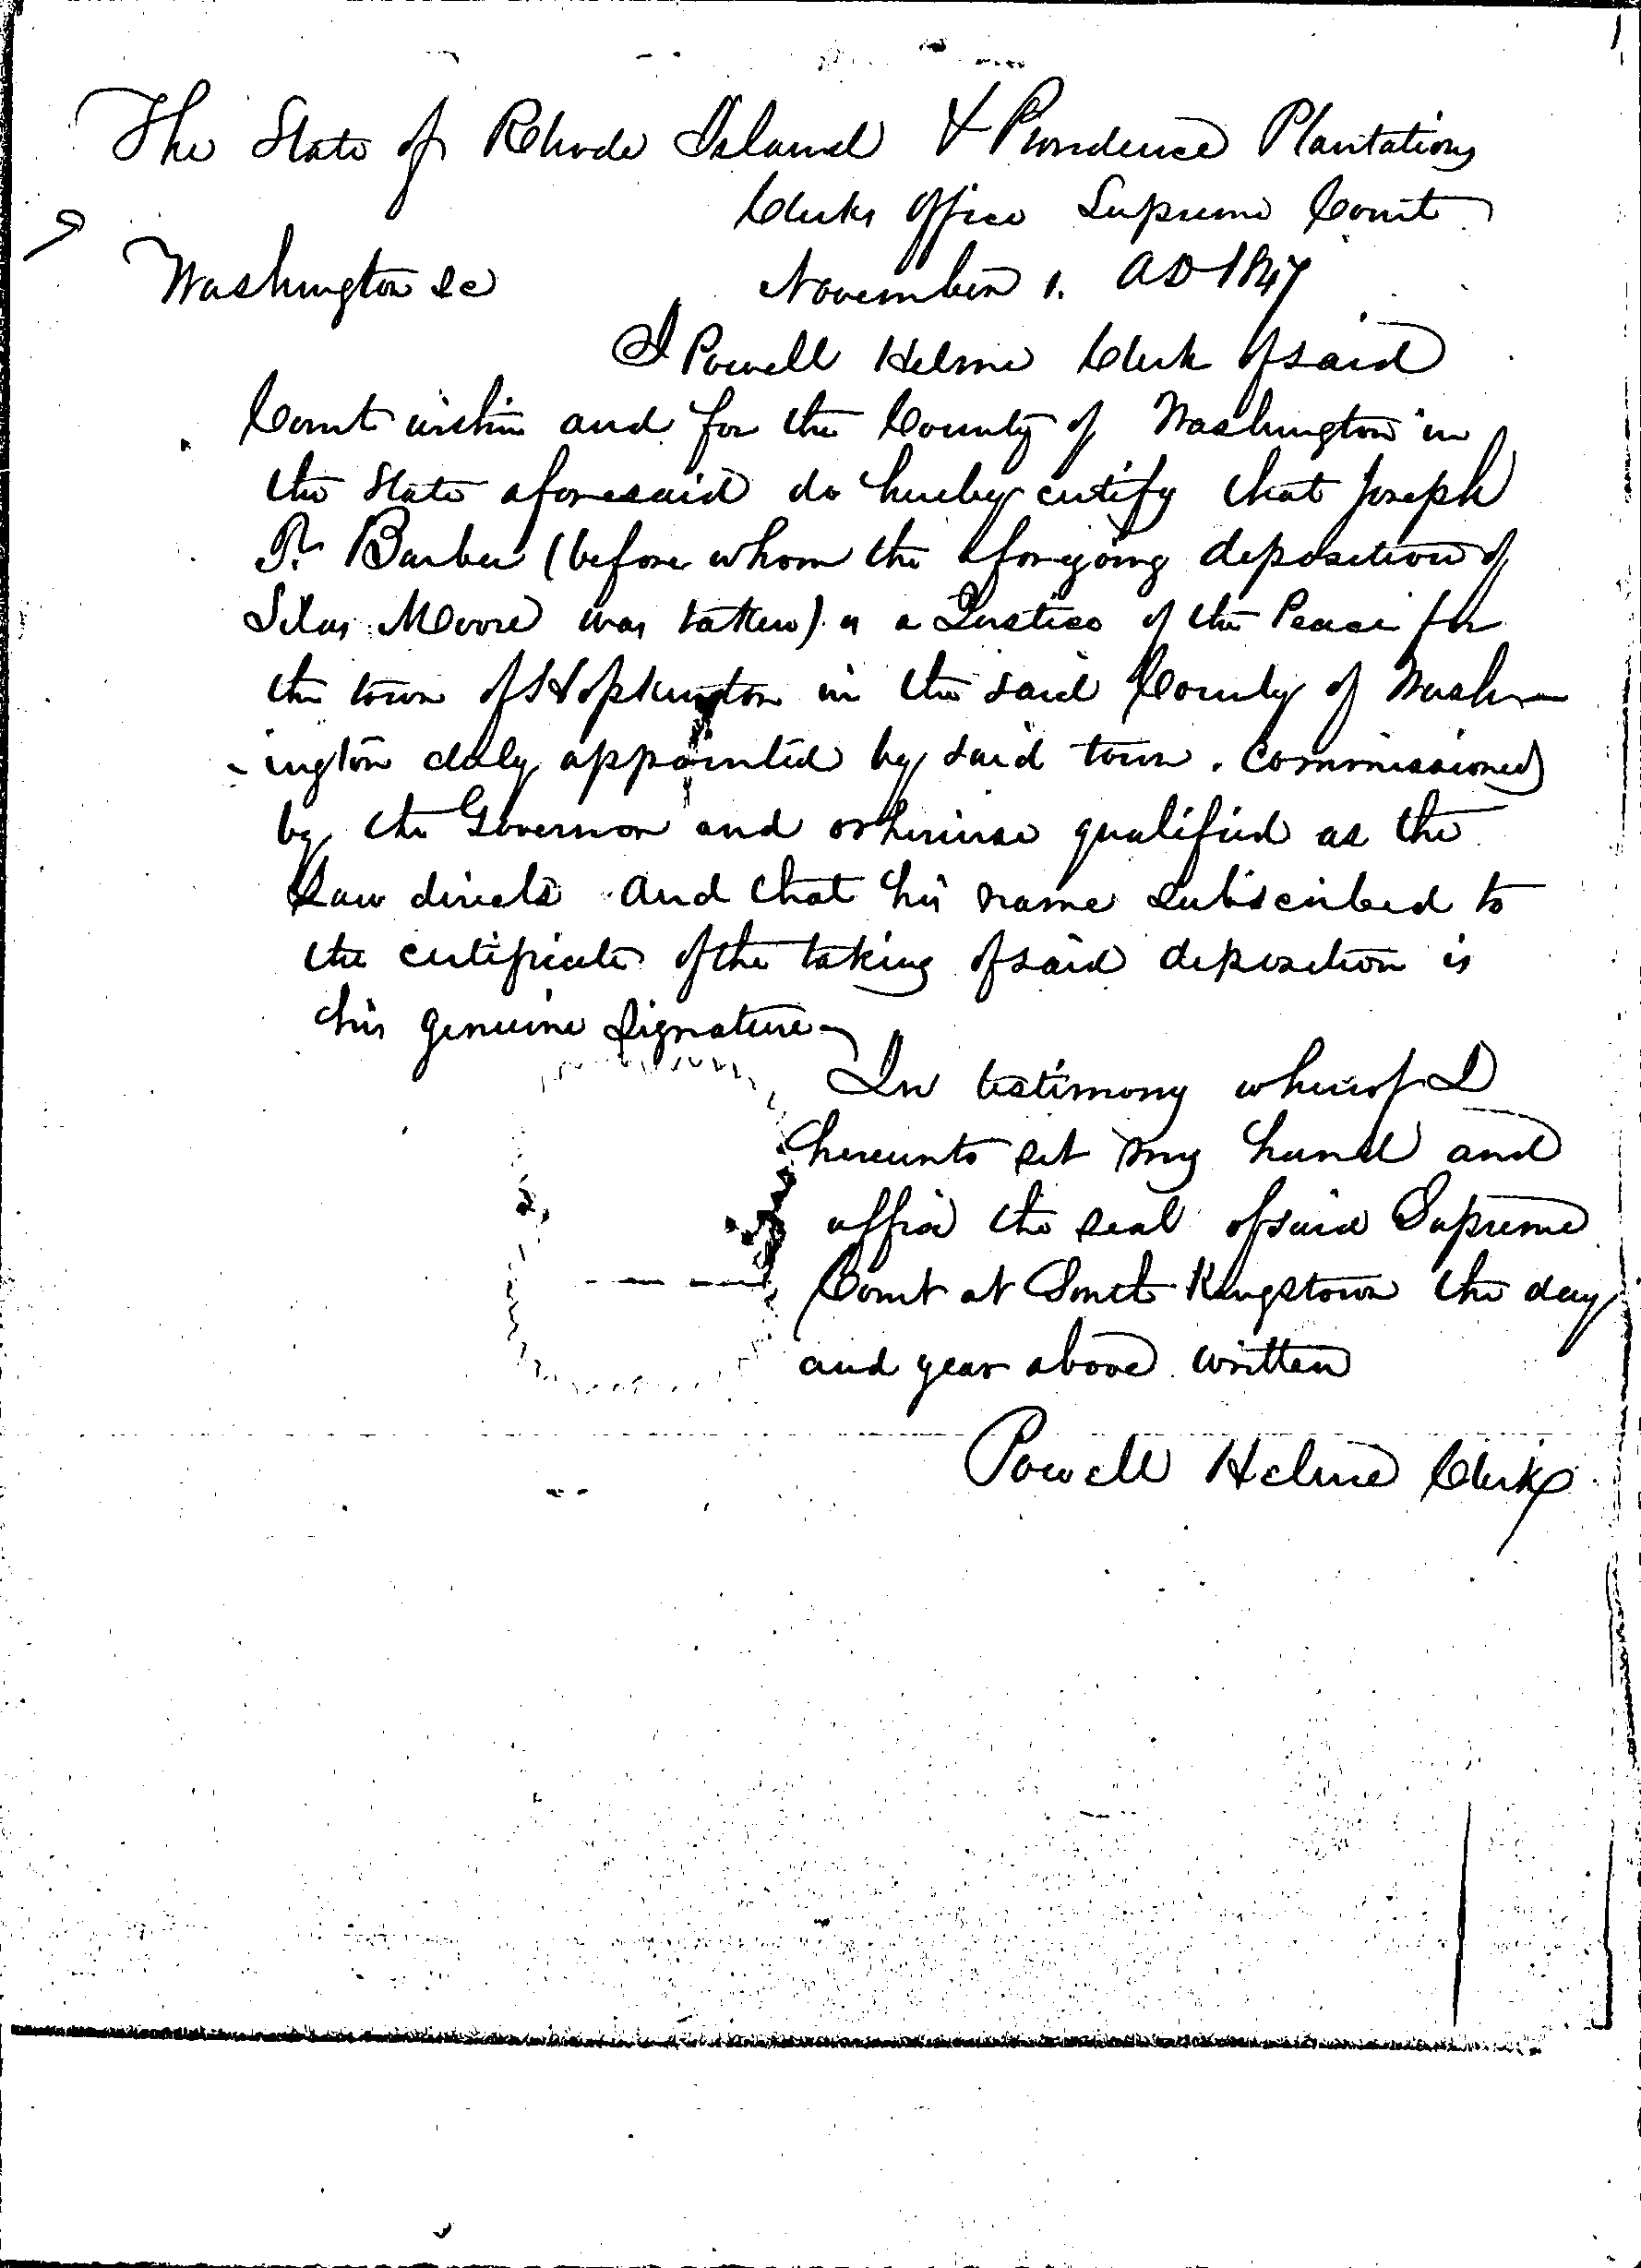 The State of Rhode Island & Providence Plantations
Clerks Office Supreme Court
Washington Sc November 1. AD 1847
I Powell Helme Clerk of said
Court within and for the County of Washington in
the State aforesaid do hereby certify that Joseph
Barber (before whom the aforegoing deposition of
Silas Moore was taken) is a Justice of the Peace for
the town of Hopkinton in the said County of Wash-
-ington duly appointed by said town. Commissioned
by the Governor and otherwise qualified as the
Law directs and that his name subscribed to
the certificate of the taking of said deposition is
his genuine signature
In testimony whereof I
hereunto set my hand and
affix the seal of said Supreme
Court at South Kingstown the day
and year above written
Powell Helme Clerk